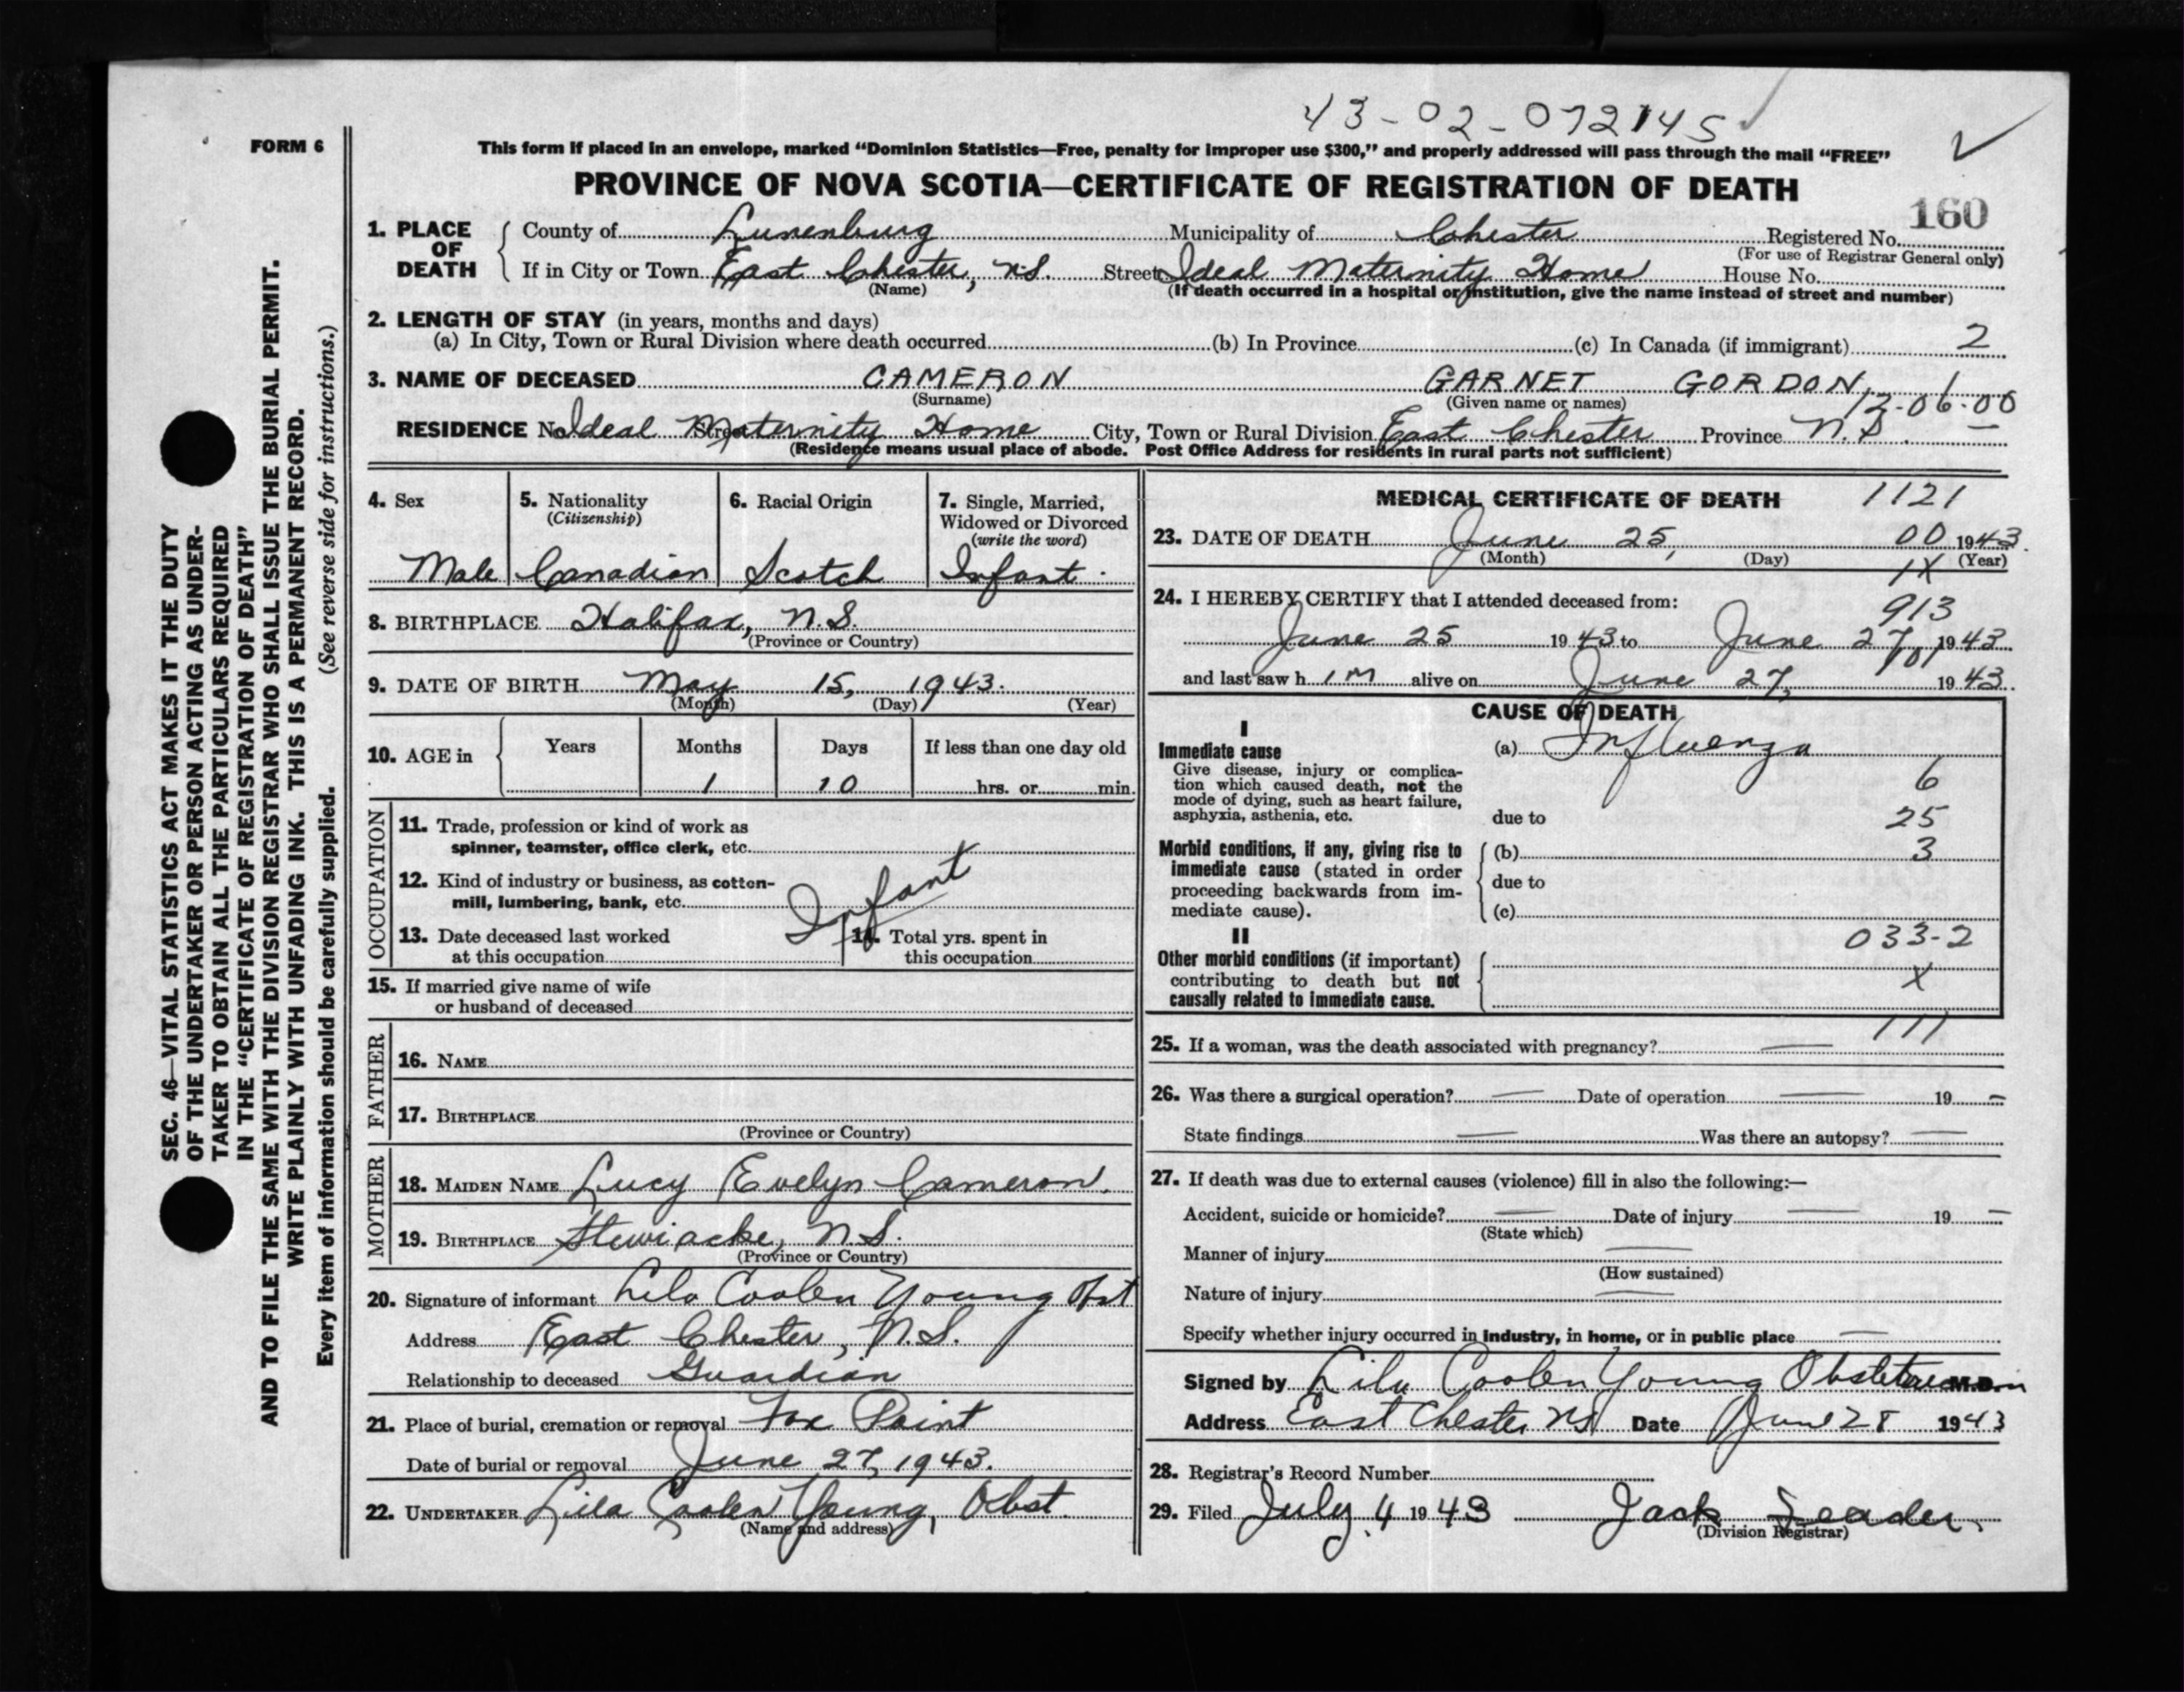 43-02-072145
FORM 6
This form if placed in an envelope, marked “Dominion Statistics—Free, penalty for improper use $300,” and properly addressed will pass through the mail “FREE”
PROVINCE OF NOVA SCOTIA—CERTIFICATE OF REGISTRATION OF DEATH
160
1. PLACE OF DEATH
County of Lunenburg Municipality of Chester Registered No.
(For use of Registrar General only)
If in City or Town East Chester, N.S. Street Ideal Maternity Home House No.
(Name) (If death occurred in a hospital or institution, give the name instead of street and number)
2. LENGTH OF STAY (in years, months and days)
(a) In City, Town or Rural Division where death occurred (b) In Province (c) In Canada (if immigrant) 2
3. NAME OF DECEASED CAMERON GARNET GORDON.
(Surname) (Given name or names)
12-06-00
RESIDENCE No. Ideal Maternity Home Street City, Town or Rural Division East Chester Province N.S.
(Residence means usual place of abode. Post Office Address for residents in rural parts not sufficient)
4. Sex
Male
5. Nationality
(Citizenship)
Canadian
6. Racial Origin
Scotch
7. Single, Married,
Widowed or Divorced
(write the word)
Infant.
8. BIRTHPLACE Halifax, N.S.
(Province or Country)
9. DATE OF BIRTH May 15, 1943.
(Month) (Day) (Year)
10. AGE in
Years Months Days If less than one day old
1 10 hrs. or min.
OCCUPATION
11. Trade, profession or kind of work as
spinner, teamster, office clerk, etc.
12. Kind of industry or business, as cotton-
mill, lumbering, bank, etc.
Infant
13. Date deceased last worked
at this occupation
14. Total yrs. spent in
this occupation
15. If married give name of wife
or husband of deceased
FATHER
16. NAME
17. BIRTHPLACE
(Province or Country)
MOTHER
18. MAIDEN NAME Lucy Evelyn Cameron.
19. BIRTHPLACE Stewiacke, N.S.
(Province or Country)
20. Signature of informant Lila Coolen Young Obst
Address East Chester, N.S.
Relationship to deceased Guardian
21. Place of burial, cremation or removal Fox Point
Date of burial or removal June 27, 1943.
22. UNDERTAKER Lila Coolen Young, Obst.
(Name and address)
MEDICAL CERTIFICATE OF DEATH
1121
23. DATE OF DEATH June 25, 00 1943.
(Month) (Day) (Year)
1X
24. I HEREBY CERTIFY that I attended deceased from:
913
June 25 1943 to June 27, 1943
101
and last saw him alive on June 27, 1943.
CAUSE OF DEATH
I
Immediate cause
Give disease, injury or complica-
tion which caused death, not the
mode of dying, such as heart failure,
asphyxia, asthenia, etc.
(a) Influenza
6
due to 25
Morbid conditions, if any, giving rise to
immediate cause (stated in order
proceeding backwards from im-
mediate cause).
(b) 3
due to
(c)
II
033-2
Other morbid conditions (if important)
contributing to death but not
causally related to immediate cause.
X
111
25. If a woman, was the death associated with pregnancy? —
26. Was there a surgical operation? — Date of operation — 19 —
State findings — Was there an autopsy? —
27. If death was due to external causes (violence) fill in also the following:—
Accident, suicide or homicide? — Date of injury — 19 —
(State which)
Manner of injury —
(How sustained)
Nature of injury —
Specify whether injury occurred in industry, in home, or in public place —
Signed by Lila Coolen Young Obstetrician M.D.
Address East Chester NS Date June 28 1943
28. Registrar's Record Number
29. Filed July 4 1943 Jack Leader.
(Division Registrar)
SEC. 46—VITAL STATISTICS ACT MAKES IT THE DUTY
OF THE UNDERTAKER OR PERSON ACTING AS UNDER-
TAKER TO OBTAIN ALL THE PARTICULARS REQUIRED
IN THE “CERTIFICATE OF REGISTRATION OF DEATH”
AND TO FILE THE SAME WITH THE DIVISION REGISTRAR WHO SHALL ISSUE THE BURIAL PERMIT.
WRITE PLAINLY WITH UNFADING INK. THIS IS A PERMANENT RECORD.
Every item of information should be carefully supplied. (See reverse side for instructions.)